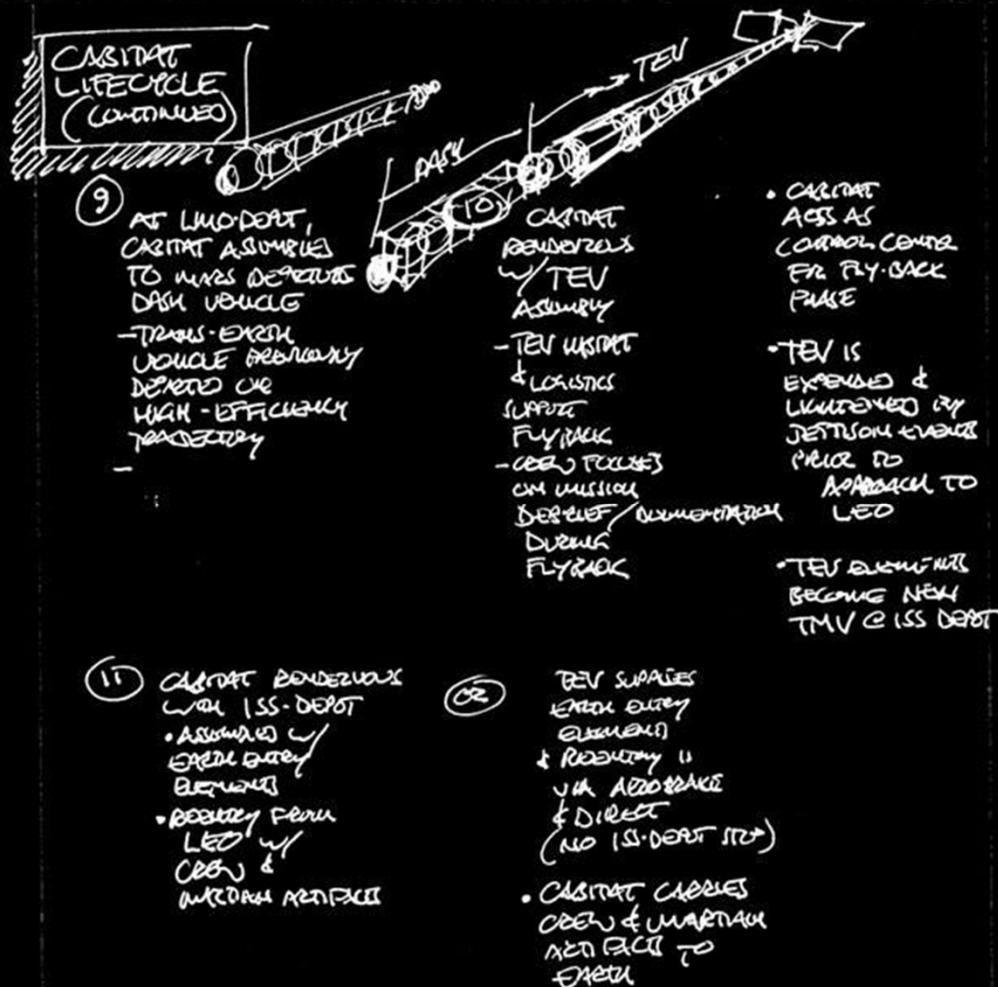 CABITAT
LIFECYCLE
(CONTINUED)
TEV
DASH
9
AT LMO-DEPOT,
CABITAT ASSEMBLES
TO MARS DEPARTURE
DASH VEHICLE
- TRANS-EARTH
VEHICLE PREVIOUSLY
DEPARTED ON
HIGH-EFFICIENCY
TRAJECTORY
-
10
CABITAT
RENDEZVOUS
W/ TEV
ASSEMBLY
- TEV HABITAT
& LOGISTICS
SUPPORT
FLYBACK
- CREW FOCUSES
ON MISSION
DEBRIEF/DOCUMENTATION
DURING
FLYBACK
• CABITAT
ACTS AS
CONTROL CENTER
FOR FLY-BACK
PHASE
• TEV IS
EXPENDED &
LIGHTENED BY
JETTISON EVENTS
PRIOR TO
APPROACH TO
LEO
• TEV ELEMENTS
BECOME NEW
TMV @ ISS DEPOT
11
CABITAT RENDEZVOUS
WITH ISS-DEPOT
• ASSEMBLED W/
EARTH ENTRY
ELEMENTS
• REENTRY FROM
LEO W/
CREW &
MARTIAN ARTIFACTS
OR
TEV SUPPLIES
EARTH ENTRY
ELEMENTS
& REENTRY IS
VIA AEROBRAKE
& DIRECT
(NO ISS-DEPOT STOP)
• CABITAT CARRIES
CREW & MARTIAN
ARTIFACTS TO
EARTH